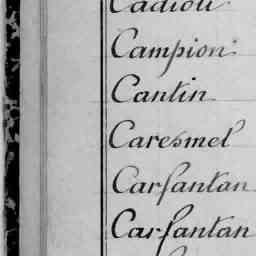 Cadiou
Campion
Cantin
Caresmel
Carfantan
Carfantan